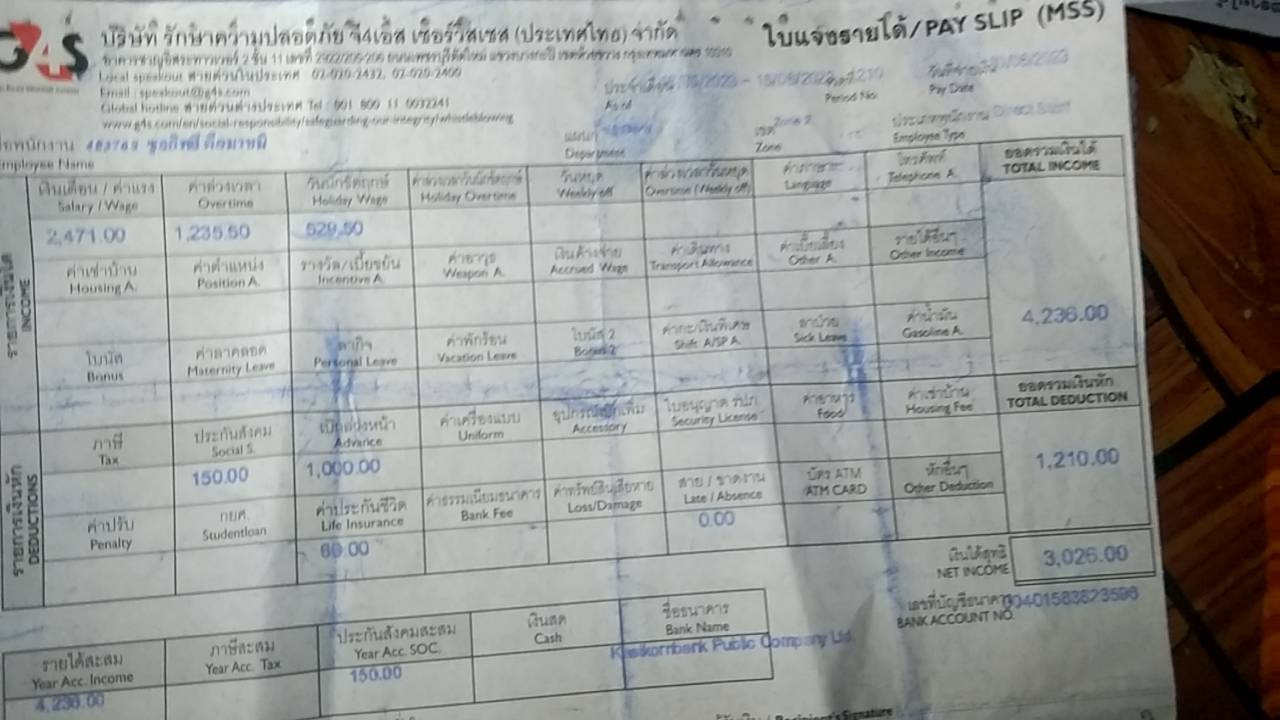 G4S
บริษัท รักษาความปลอดภัย จี4เอส เซอร์วิสเซส (ประเทศไทย) จำกัด
ใบแจ้งรายได้/PAY SLIP (MSS)
Local speakout สายด่วนในประเทศ 02-020-2432, 02-020-2400
Email : speakout@g4s.com
Global hotline สายด่วนต่างประเทศ Tel : 001 800 11 0032241
www.g4s.com/en/social-responsibility/safeguarding-our-integrity/whistleblowing
As of
Period No. 1210
Pay Date
Employee Name
Department
Zone Zone 2
ประเภทพนักงาน
Employee Type
รายการเงินได้ INCOME
เงินเดือน / ค่าแรง ค่าล่วงเวลา วันนักขัตฤกษ์ ค่าล่วงเวลาวันนักขัตฤกษ์ วันหยุด ค่าล่วงเวลาวันหยุด ค่าภาษา โทรศัพท์ ยอดรวมเงินได้
Salary / Wage Overtime Holiday Wage Holiday Overtime Weekly off Overtime (Weekly off) Language Telephone A. TOTAL INCOME
2,471.00 1,235.50 529.50
ค่าเช่าบ้าน ค่าตำแหน่ง รางวัล/เบี้ยขยัน ค่าอาวุธ เงินค้างจ่าย ค่าเดินทาง ค่าเบี้ยเลี้ยง รายได้อื่นๆ
Housing A. Position A. Incentive A. Weapon A. Accrued Wage Transport Allowance Other A. Other Income
4,236.00
โบนัส ค่าลาคลอด ลากิจ ค่าพักร้อน โบนัส 2 ค่ากะ/เงินพิเศษ ลาป่วย ค่าน้ำมัน
Bonus Maternity Leave Personal Leave Vacation Leave Bonus 2 Shift A/SP A. Sick Leave Gasoline A.
รายการเงินหัก DEDUCTIONS
ภาษี ประกันสังคม เบิกล่วงหน้า ค่าเครื่องแบบ อุปกรณ์เบิกเพิ่ม ใบอนุญาต รปภ. ค่าอาหาร ค่าเช่าบ้าน ยอดรวมเงินหัก
Tax Social S. Advance Uniform Accessory Security License Food Housing Fee TOTAL DEDUCTION
150.00 1,000.00
1,210.00
ค่าปรับ กยศ. ค่าประกันชีวิต ค่าธรรมเนียมธนาคาร ค่าทรัพย์สินเสียหาย สาย / ขาดงาน บัตร ATM หักอื่นๆ
Penalty Studentloan Life Insurance Bank Fee Loss/Damage Late / Absence ATM CARD Other Deduction
60.00 0.00
เงินได้สุทธิ
NET INCOME 3,026.00
เลขที่บัญชีธนาคาร
BANK ACCOUNT NO.
รายได้สะสม ภาษีสะสม ประกันสังคมสะสม เงินสด ชื่อธนาคาร
Year Acc. Income Year Acc. Tax Year Acc. SOC. Cash Bank Name
4,236.00 150.00 Kasikornbank Public Company Ltd.
Recipient's Signature